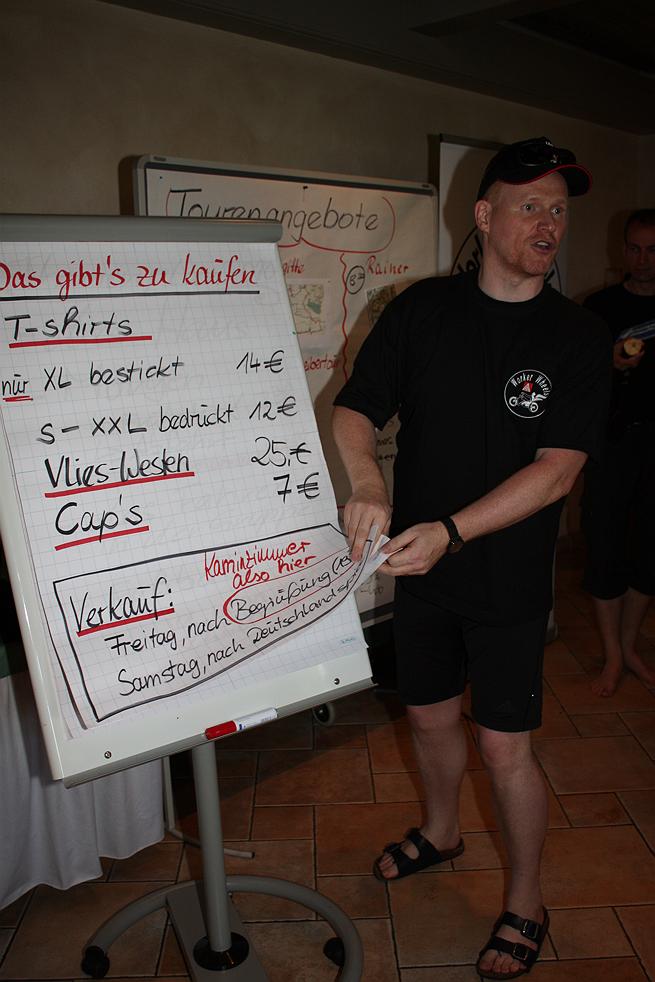 Das gibt's zu kaufen
T-shirts
nur XL bestickt 14 €
S - XXL bedruckt 12 €
Vlies-Westen 25,- €
Cap's 7 €
Kaminzimmer
also hier
Verkauf:
Freitag, nach Begrüßung
Samstag, nach Deutschlandsp
Tourenangebote
Rainer
Worker Wheels